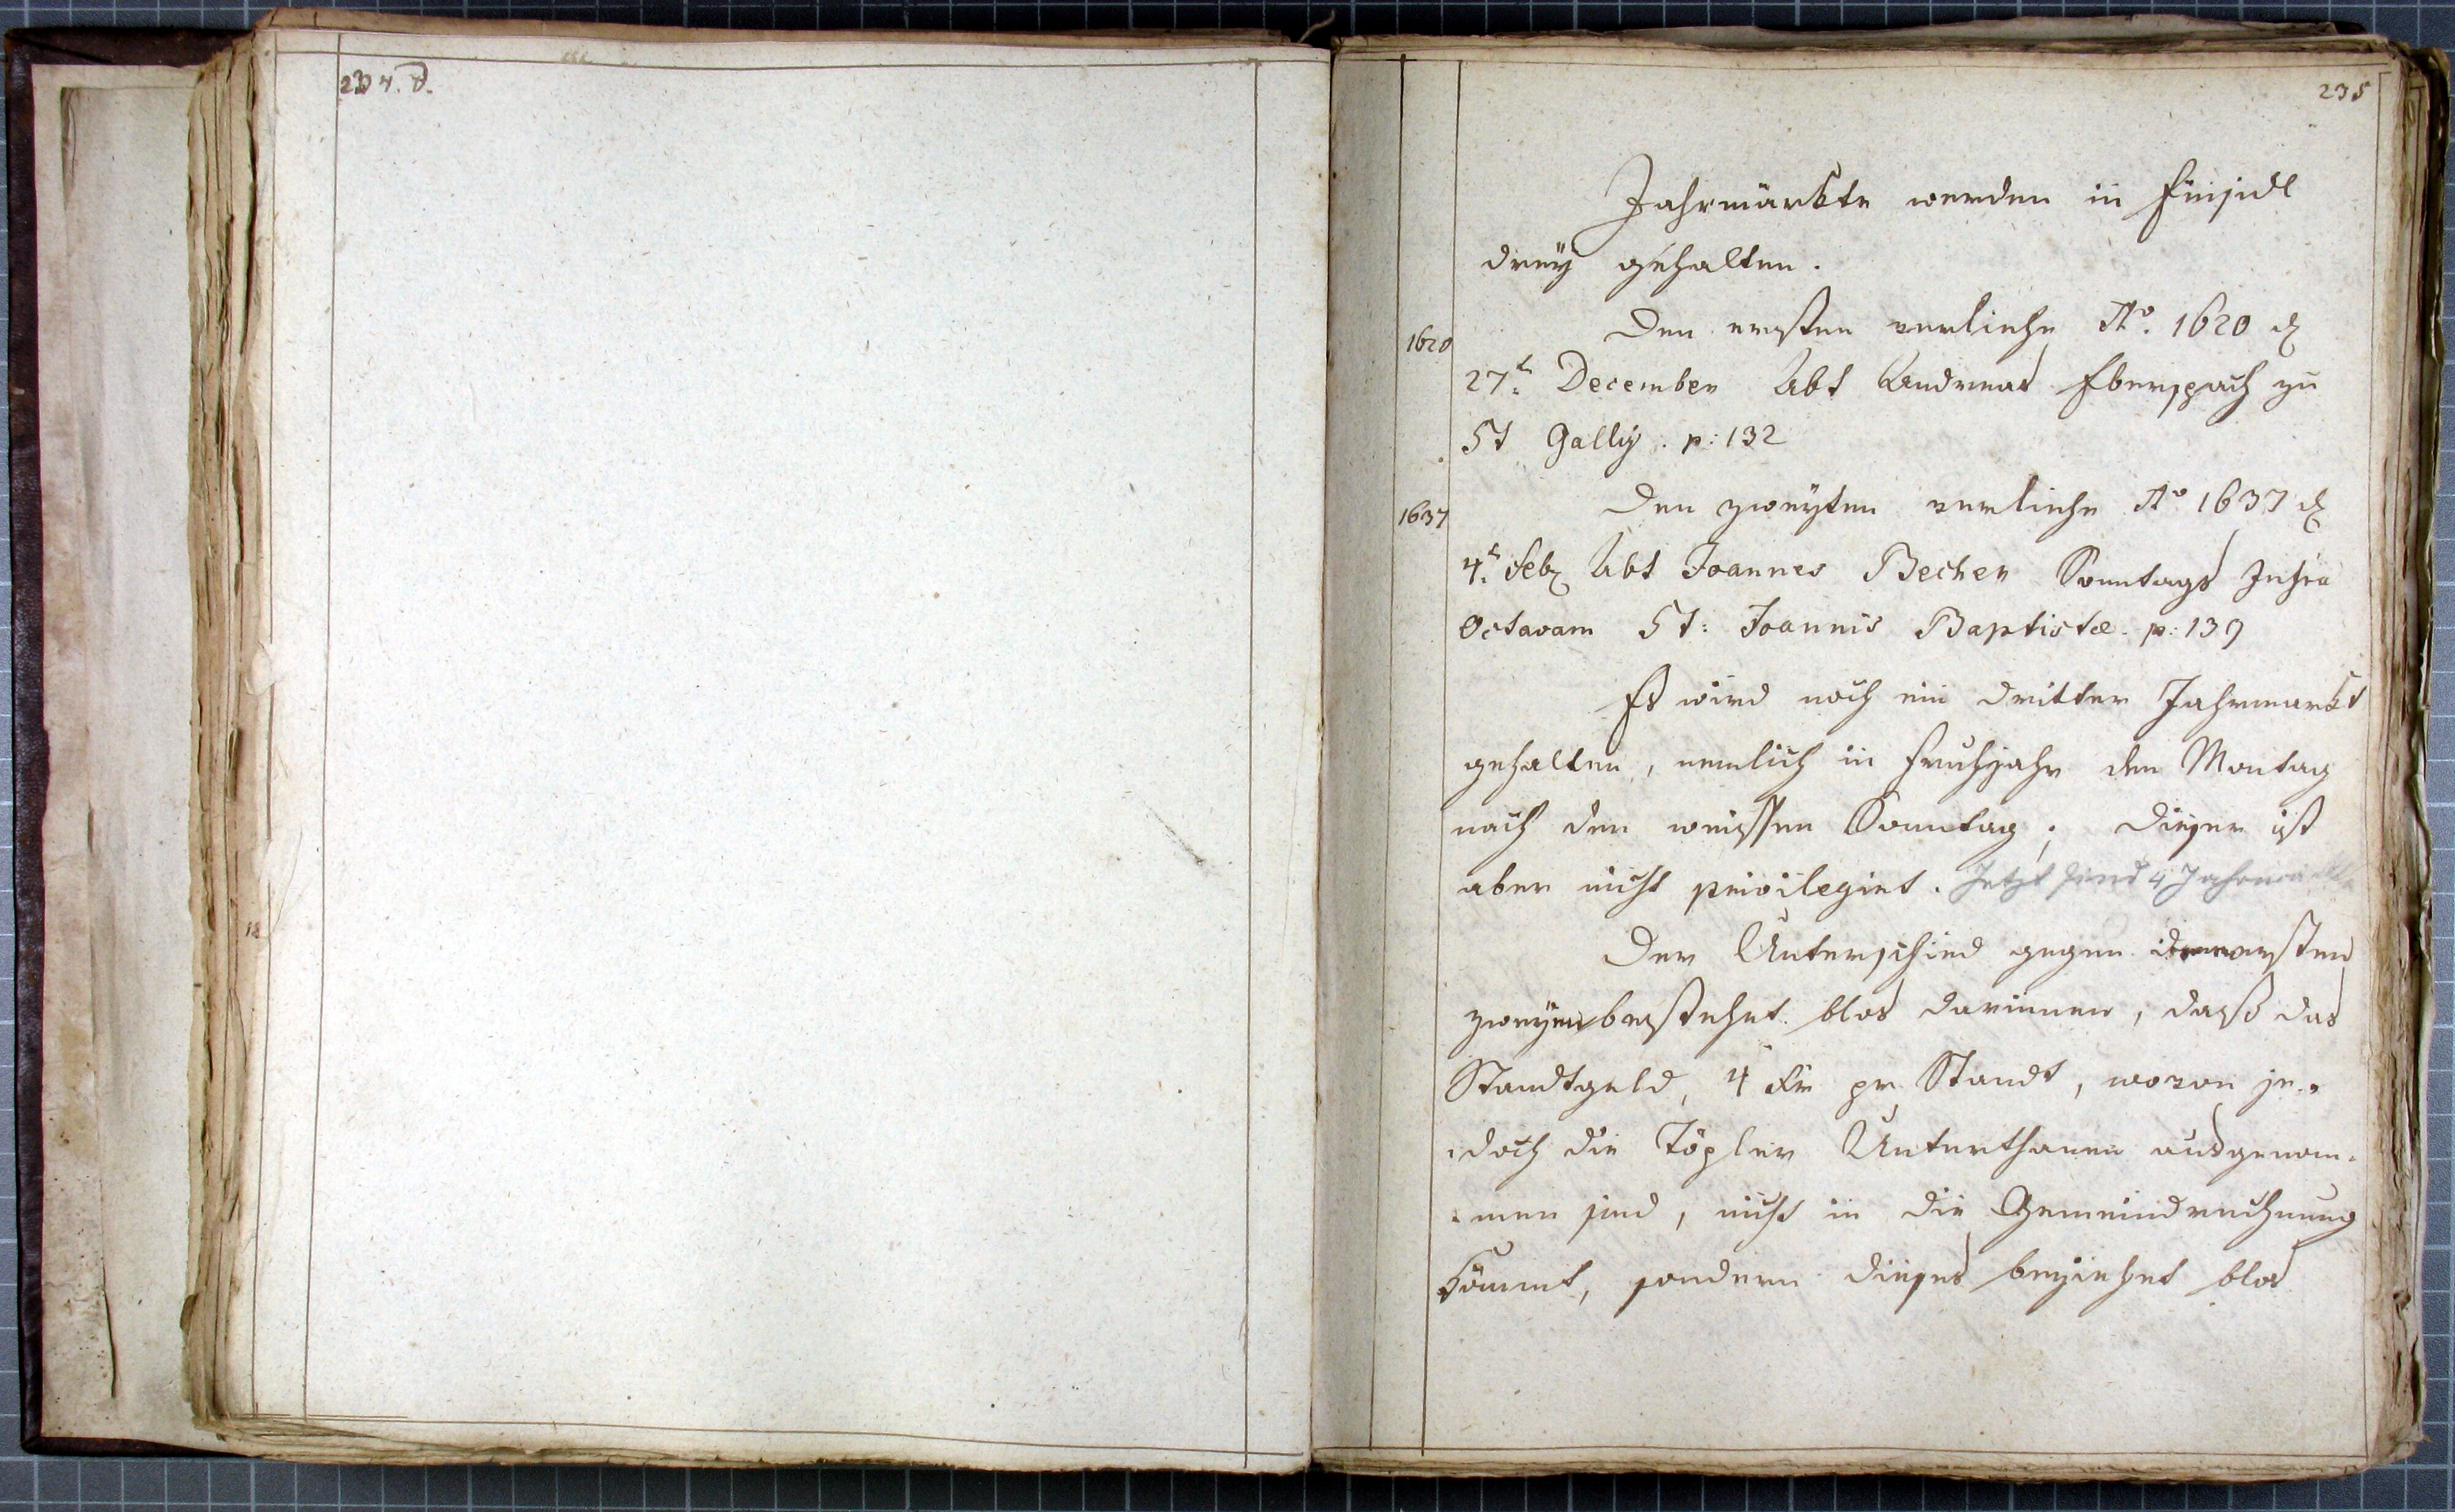 234. d.
235
Jahrmärkte werden in Einsidl
dreÿ gehalten.
1620
Den ersten verliehe Aº. 1620 d
27t. December Abt Andreas Eberspach zu
St Gallÿ. p: 132
1637
Den zweÿten verliehe Aº 1637 d
4t. Feb Abt Joannes Becher Sontags Infra
Octavam St: Joannis Baptistæ. p: 139
Es wird noch ein dritter Jahrmarkt
gehalten, nemlich in Fruhjahr den Montag
nach den weissen Sonntag; dieser ist
aber nicht privilegirt. Jetzt sind 4 Jahrmärkte
Der Unterschied gegen den ersten
zweÿen bestehet blos darinnen, daß das
Standtgeld, 4 Kr pr Standt, wovon je-
doch die Töpler Unterthanen ausgenom-
men sind, nicht in die Gemeindrechnung
kömmt, sondern dieses beziehet blos
18